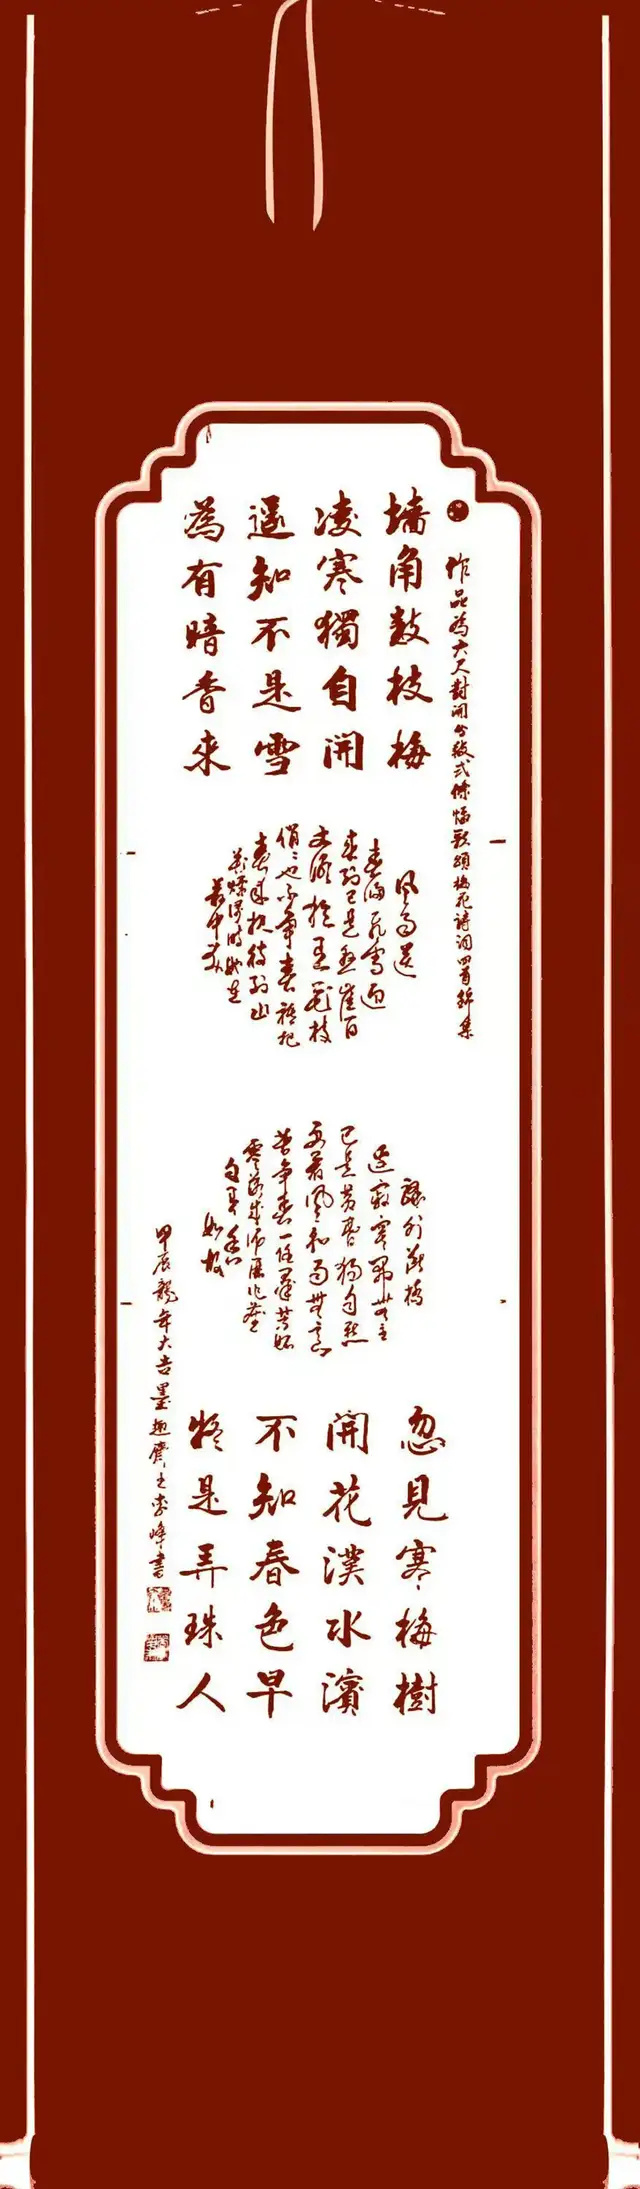 作品為六尺對開分段式條幅歌頌梅花詩詞四首錦集
墙角數枝梅
凌寒獨自開
遥知不是雪
為有暗香來
風雨送
春归飛雪迎
春到已是悬崖百
丈冰猶有花枝
俏俏也不争春祗把
春来報待到山
花爛漫時她在
叢中笑
驛外斷橋
邊寂寞開無主
已是黄昏獨自愁
更著風和雨無意
苦争春一任群芳妒
零落成泥碾作塵
只有香
如故
忽見寒梅樹
開花漢水濱
不知春色早
疑是弄珠人
甲辰龍年大吉墨趣齋主李峰書